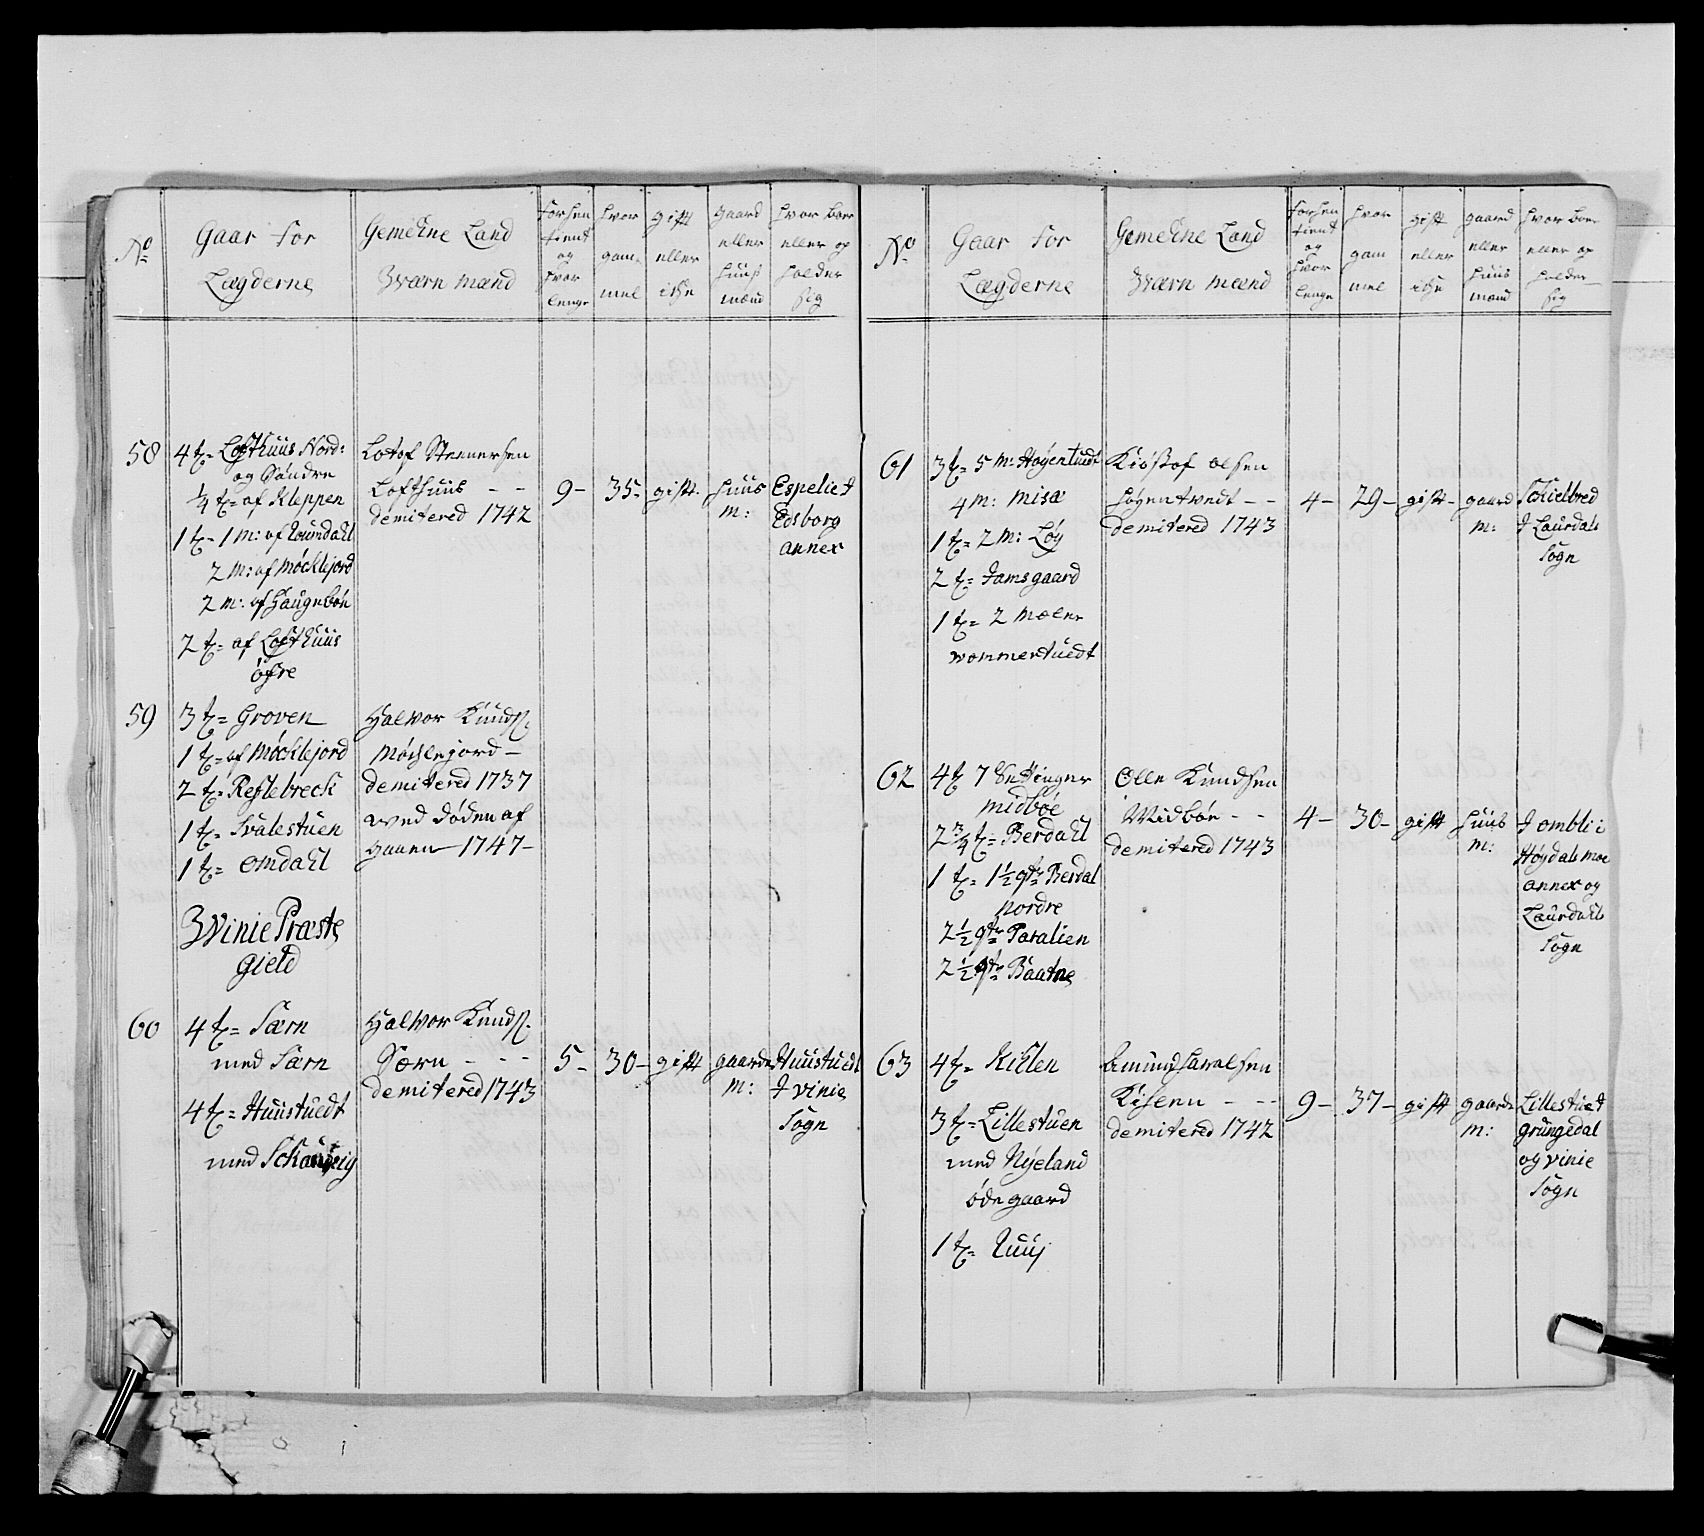 No
Gaar for
Lægderne
Gemeene Land
Zværn mænd
forhen
tient
og
hvor
lenge
hvor
gam
mel
gift
eller
iche
gaard
eller
huus
mænd
hvor boer
eller op
holder
sig
58
4 tℓ= Lofthuus Nord:
og Søndre
¼ tℓ= af Kleppen
1 tℓ- 1 m: af Roundahl
2 m: af Møcklejord
2 m: af Haugebøe
2 tℓ= af Lofthuus
øfre
Lotof Steenersen
Lofthuus - -
demitered 1742
9-
35-
gift-
huus
m:
Espelie J
Edsborg
annex
59
3 tℓ= Groven
1 tℓ= af Møcklejord
2 tℓ= Reslebreck
1 tℓ= Svalestuen
1 tℓ= omdahl
Halvor Knuds.
Møchlejord-
demitered 1737
ved døden af
gaaen 1747-
Zvinie Præste
gield
60
4 tℓ= Særn
med Særn
4 tℓ= Huustuedt
med
Halvor Knuds.
Særn - - -
demitered 1743
5-
30-
gift
gaarde
m:
Huustuedt
J vinie
Sogn
No
Gaar for
Lægderne
Gemeene Land
Zværn mænd
forhen
tient
og
hvor
lenge
hvor
gam
mel
gift
eller
iche
gaard
eller
huus
mænd
hvor boer
eller op
holder
sig
61
3 tℓ= 5 m: Høyentuedt
4 m: misæ
1 tℓ= 2 m: Løy
2 tℓ= Jamsgaard
1 tℓ= 2 mæler
vommertuedt
Kiøstof olsen
Høyentvedt - -
demitered 1743
4-
29-
gift-
gaard
m:
Schielbred
J Laurdals
Sogn
62
4 tℓ 7 Settinger
midbøe
2¾ tℓ= Berdahl
1 tℓ= 1½ qtr Berdal
Nordre
2½ qtr
2½ qtr
Olle Knudsen
Midbøe - -
demitered 1743
4-
30-
gift
huus
m:
J ombli i
Høydalsmoe
annex og
Laurdahls
Sogn
63
4 tℓ= Kielen
3 tℓ= Lillestuen
med Nyeland
ødegaard
1 tℓ=
Amund
- - -
demitered 1742
9-
37-
gift
gaarde
m:
Lillestue J
grungedal
og vinie
Sogn